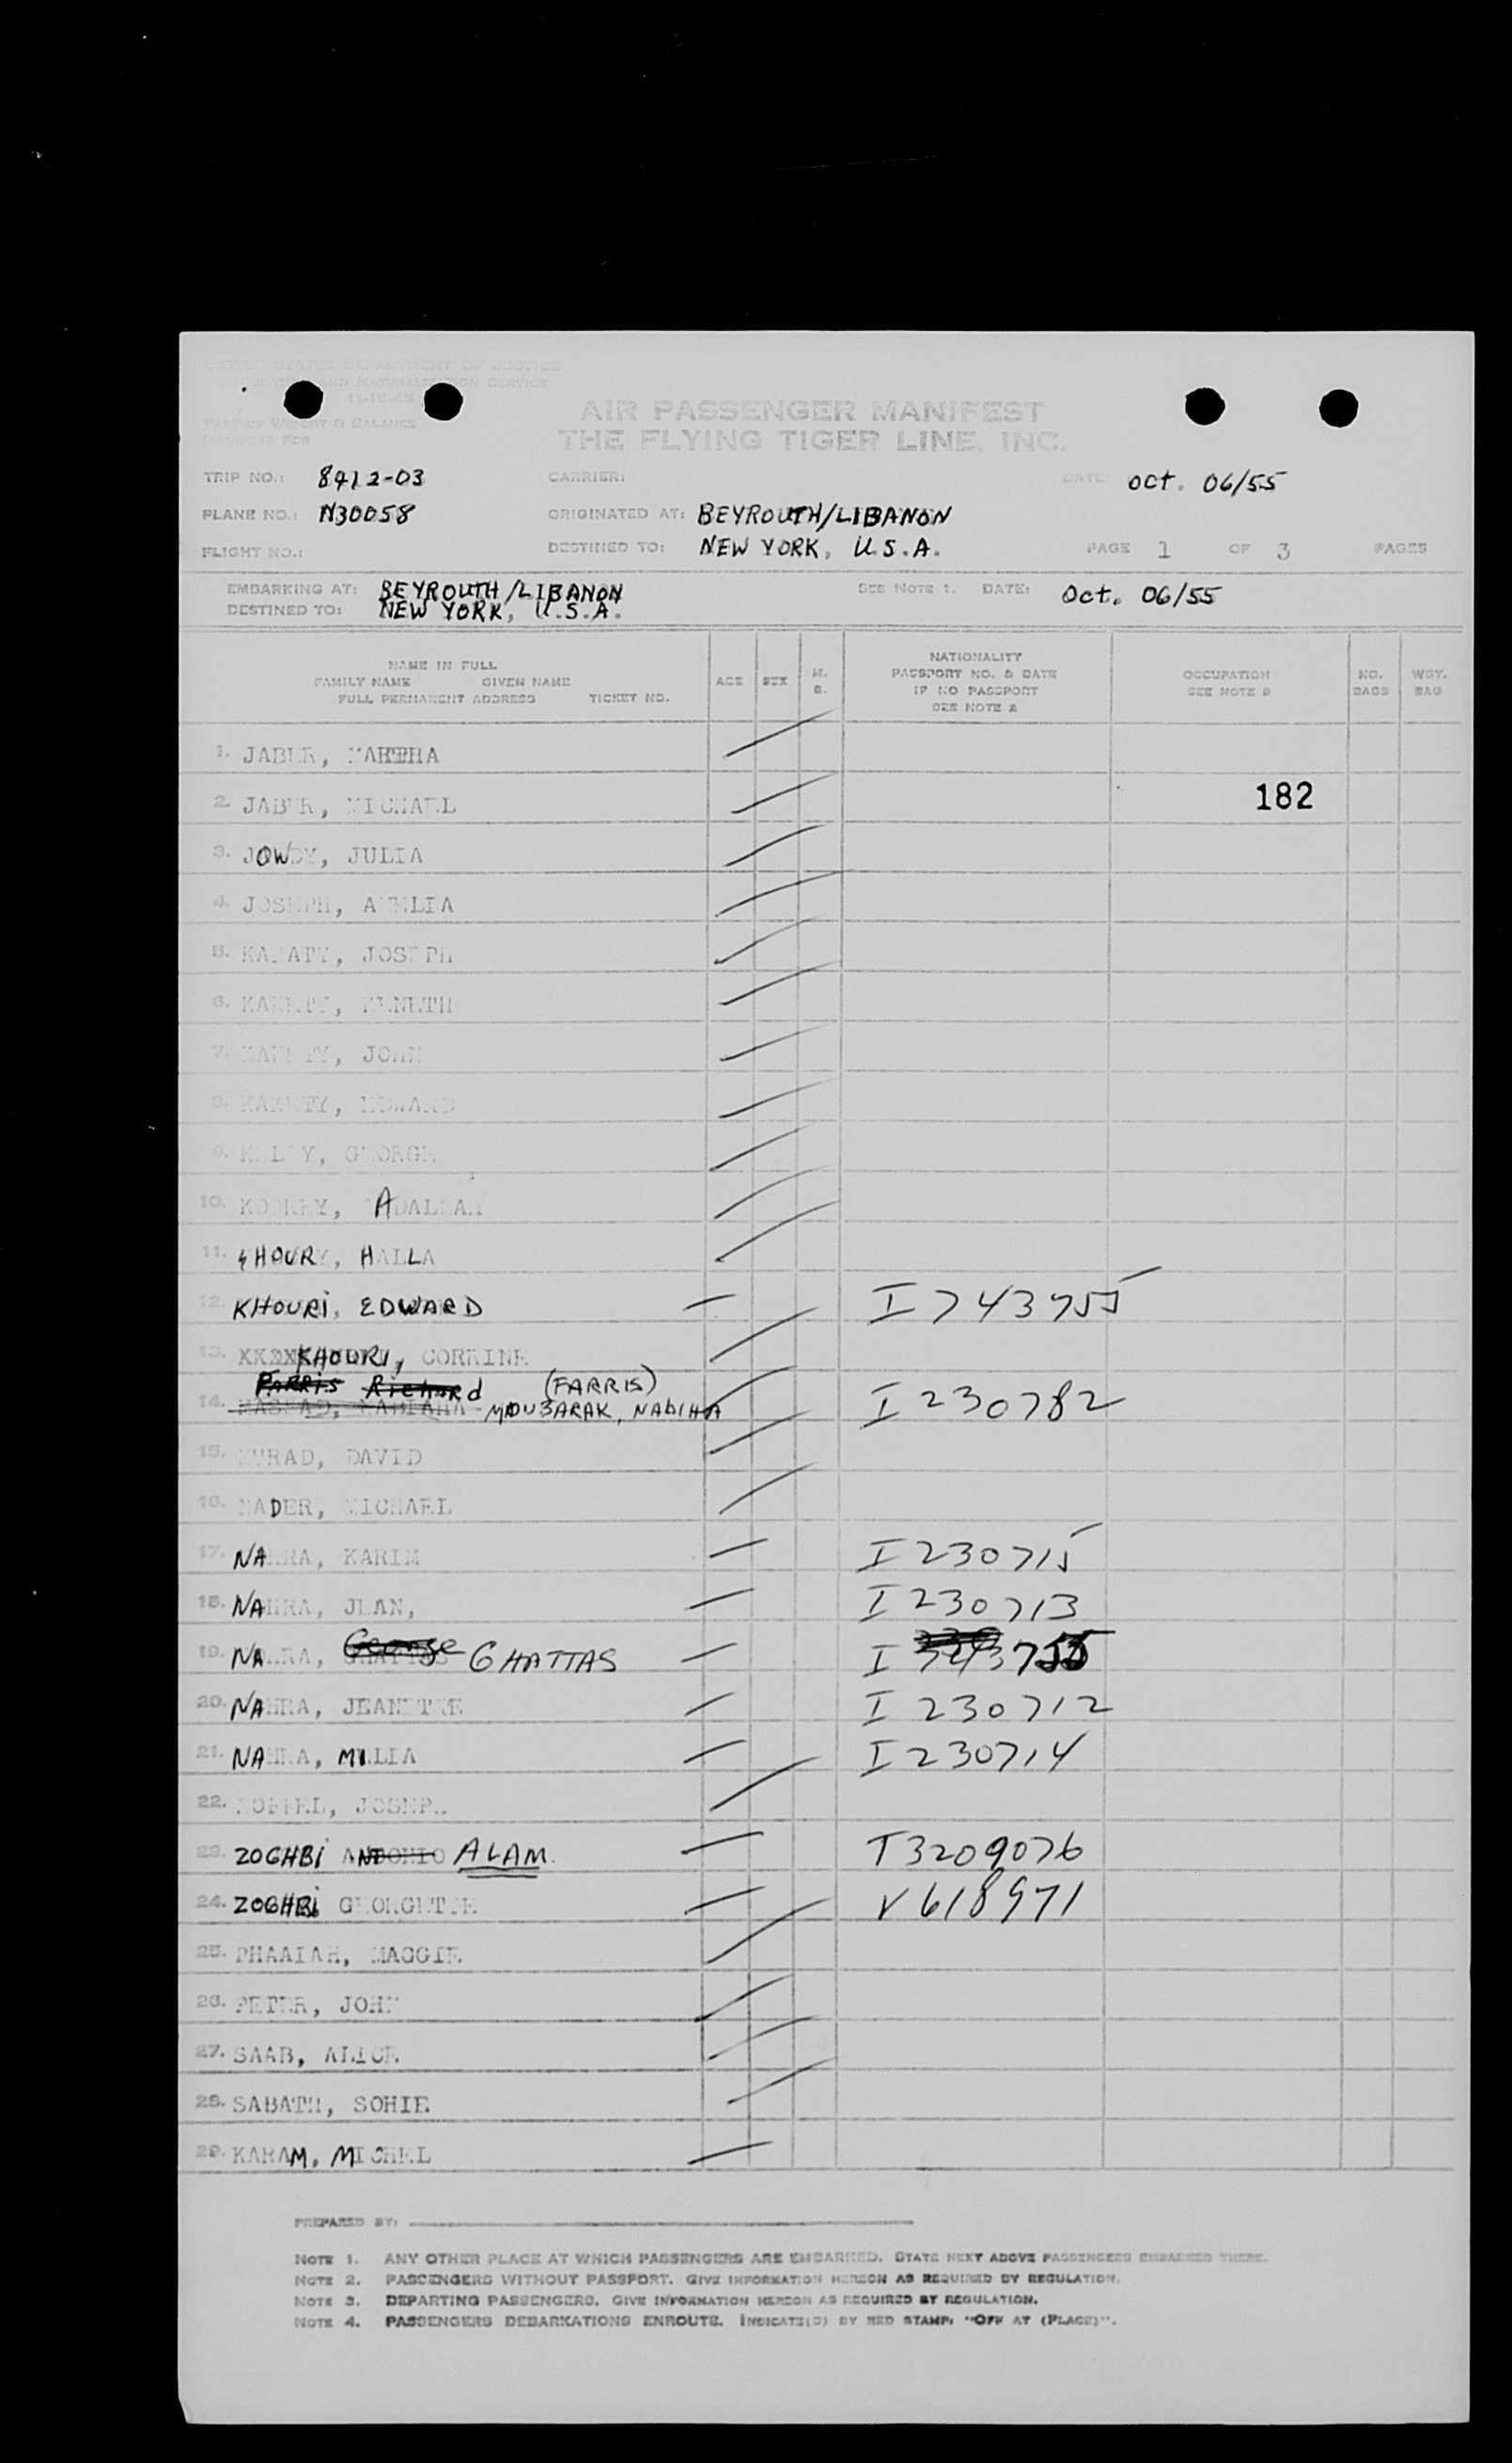 UNITED STATES DEPARTMENT OF JUSTICE
AND NATURALIZATION SERVICE
PART OF WEIGHT & BALANCE
MANIFEST FOR
AIR PASSENGER MANIFEST
THE FLYING TIGER LINE, INC.
TRIP NO.: 8412-03 CARRIER: DATE: Oct. 06/55
PLANE NO.: N30058 ORIGINATED AT: BEYROUTH/LIBANON
FLIGHT NO.: DESTINED TO: NEW YORK, U.S.A. PAGE 1 OF 3 PAGES
EMBARKING AT: BEYROUTH/LIBANON SEE NOTE 1. DATE: Oct. 06/55
DESTINED TO: NEW YORK, U.S.A.
NAME IN FULL
FAMILY NAME GIVEN NAME
FULL PERMANENT ADDRESS TICKET NO.
AGE SEX M. S.
NATIONALITY
PASSPORT NO. & DATE
IF NO PASSPORT
SEE NOTE 2
OCCUPATION
SEE NOTE 3
NO. BAGS
WGT. BAG
1. JABER, MARTHA
2. JABER, MICHAEL 182
3. JOWDY, JULIA
4. JOSEPH, AMELIA
5. JOSEPH
6. KENNETH
7. JOHN
8. EDWARD
9. GEORGE
10. ADALLAH
11. KHOURY, HALLA
12. KHOURI, EDWARD I743755
13. KHOURI, CORRINE
Farris Richard (FARRIS)
14. MOUBARAK, NADIHA I230782
15. MURAD, DAVID
16. NADER, MICHAEL
17. NAHRA, KARIM I230715
18. NAHRA, JEAN, I230713
19. NAHRA, George GHATTAS I
20. NAHRA, JEANETTE I230712
21. NAHRA, MILIA I230714
22. JOSEPH
23. ZOGHBI ANTONIO ALAM. T3209076
24. ZOGHBI GEORGETTE V618971
25. PHAAIAH, MAGGIE
26. PETER, JOHN
27. SAAB, ALICE
28. SABATH, SOHIE
29. KARAM, MICHEL
PREPARED BY:
NOTE 1. ANY OTHER PLACE AT WHICH PASSENGERS ARE EMBARKED. STATE NEXT ABOVE PASSENGERS EMBARKED THERE.
NOTE 2. PASSENGERS WITHOUT PASSPORT. GIVE INFORMATION HEREON AS REQUIRED BY REGULATION.
NOTE 3. DEPARTING PASSENGERS. GIVE INFORMATION HEREON AS REQUIRED BY REGULATION.
NOTE 4. PASSENGERS DEBARKATIONS ENROUTE. INDICATE(D) BY RED STAMP: "OFF AT (PLACE)".